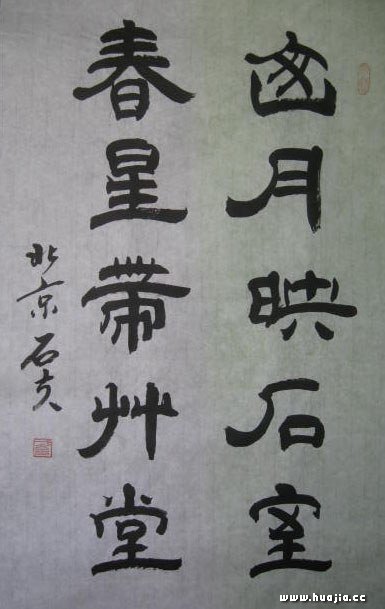 囪月映石室
春星帶艸堂
北京石
www.huajia.cc